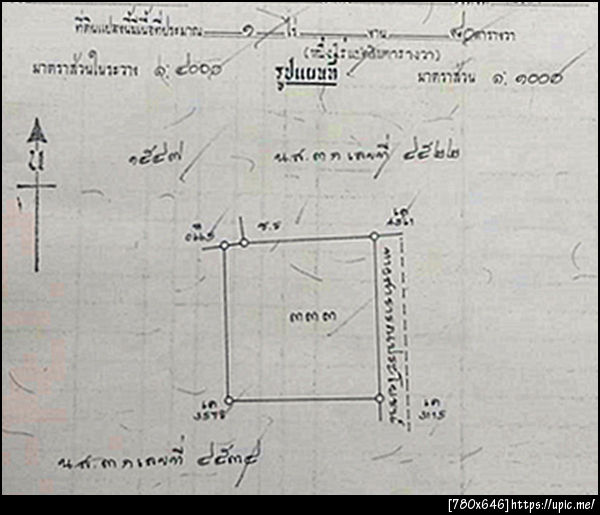 ที่ดินแปลงนี้มีเนื้อที่ประมาณ ๑ ไร่ งาน ๘๐ ตารางวา
(หนึ่งไร่แปดสิบตารางวา)
มาตราส่วนในระวาง ๑: ๔๐๐๐ รูปแผนที่ มาตราส่วน ๑: ๑๐๐๐
น
๑๕๔๗ น.ส.๓ ก เลขที่ ๔๕๒๒
ซ.ร
๓๓๓
ทางสาธารณประโยชน์
เด
3578
เด
3115
น.ส.๓ ก เลขที่ ๔๕๓๔
[780x646]https://upic.me/